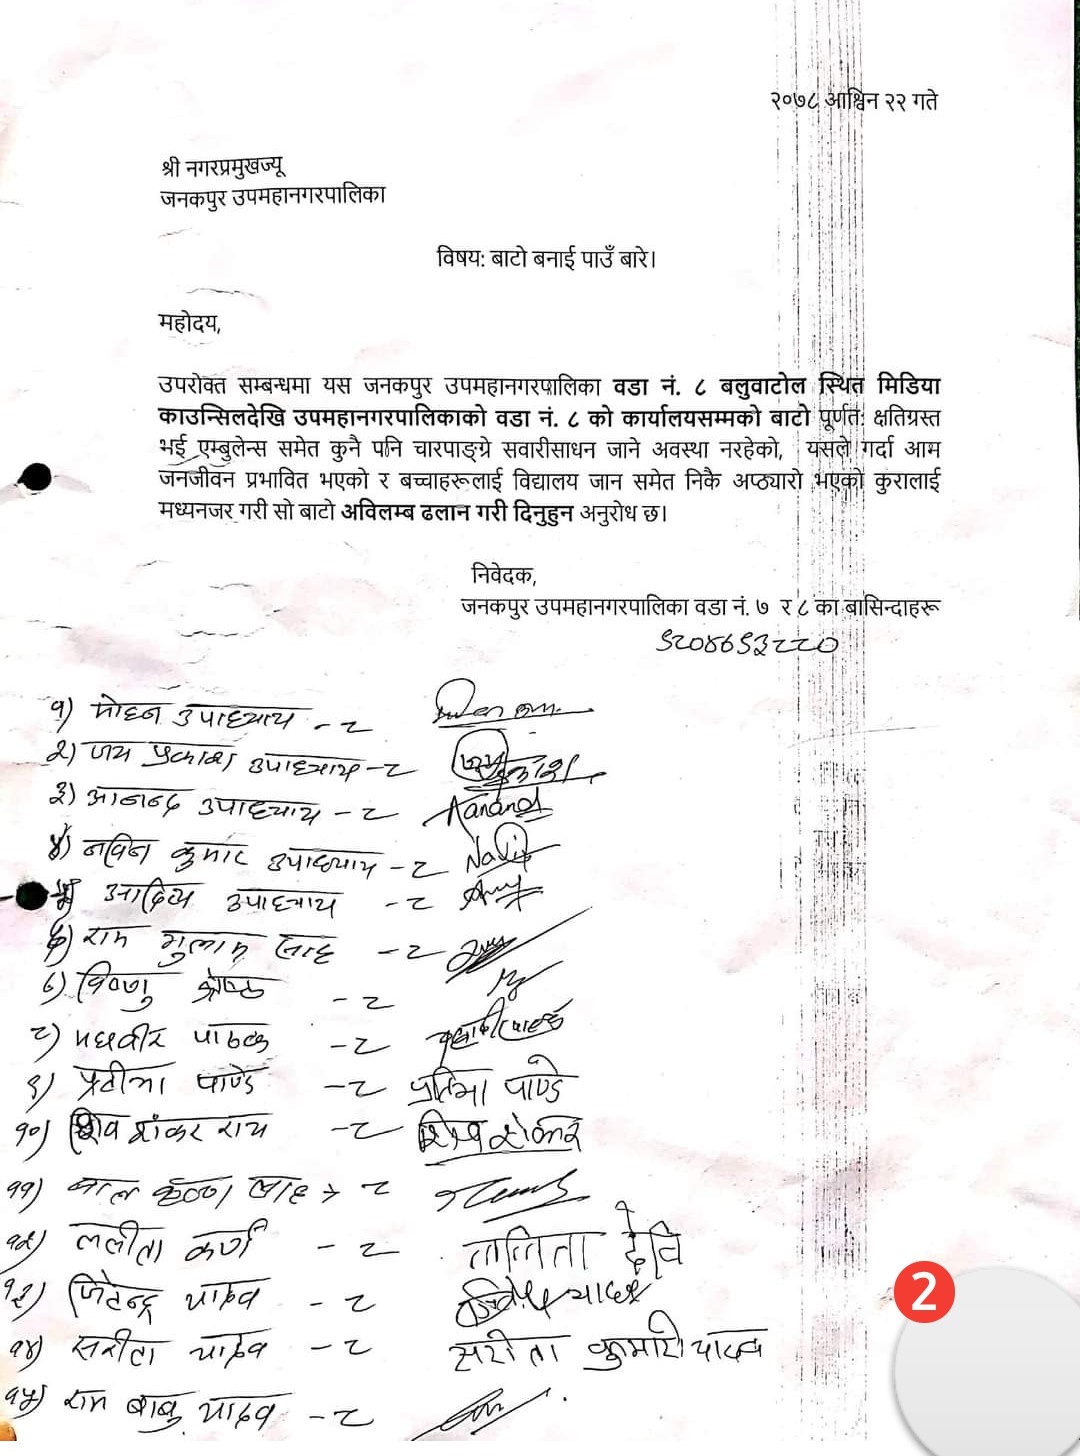 २०७८ आश्विन २२ गते
श्री नगरप्रमुखज्यू
जनकपुर उपमहानगरपालिका
विषय: बाटो बनाई पाउँ बारे।
महोदय,
उपरोक्त सम्बन्धमा यस जनकपुर उपमहानगरपालिका वडा नं. ८ बलुवाटोल स्थित मिडिया
काउन्सिलदेखि उपमहानगरपालिकाको वडा नं. ८ को कार्यालयसम्मको बाटो पूर्णत: क्षतिग्रस्त
भई एम्बुलेन्स समेत कुनै पनि चारपाङ्ग्रे सवारीसाधन जाने अवस्था नरहेको, यसले गर्दा आम
जनजीवन प्रभावित भएको र बच्चाहरूलाई विद्यालय जान समेत निकै अप्ठ्यारो भएको कुरालाई
मध्यनजर गरी सो बाटो अविलम्ब ढलान गरी दिनुहुन अनुरोध छ।
निवेदक,
जनकपुर उपमहानगरपालिका वडा नं. ७ र ८ का बासिन्दाहरू
१) मोहन उपाध्याय - ८
२) जय प्रकाश उपाध्याय - ८
३) आनन्द उपाध्याय - ८ Aanand
४) नविन कुमार उपाध्याय - ८ Navin
५) आदित्य उपाध्याय - ८
६) राम गुलाम साह - ८
७) विष्णु श्रेष्ठ - ८
८) पाठक - ८
९) प्रतीमा पाण्डे - ८ प्रतिमा पाण्डे
१०) शिव शंकर राय - ८ शिव शंकर
११) बाल कृष्ण साह - ८
१२) ललीता कर्ण - ८ ललिता देवि
१३) जितेन्द्र यादव - ८ यादव
१४) सरीता यादव - ८ सरीता कुमारी यादव
१५) राम बाबु यादव - ८
2